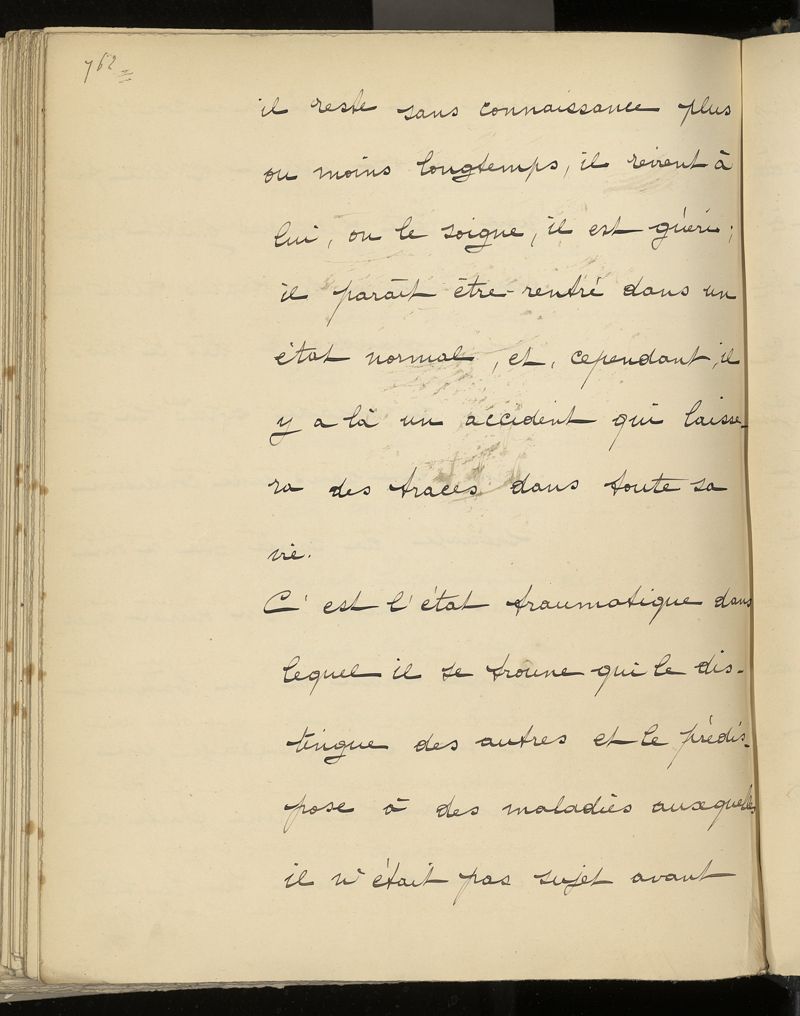 762
il reste sans connaissance plus
ou moins longtemps, il revient à
lui, on le soigne, il est guéri;
il paraît être rentré dans un
état normal, et, cependant, il
y a là un accident qui laisse-
ra des traces dans toute sa
vie.
C'est l'état traumatique dans
lequel il se trouve qui le dis-
tingue des autres et le prédis-
pose à des maladies auxquelles
il n'était pas sujet avant